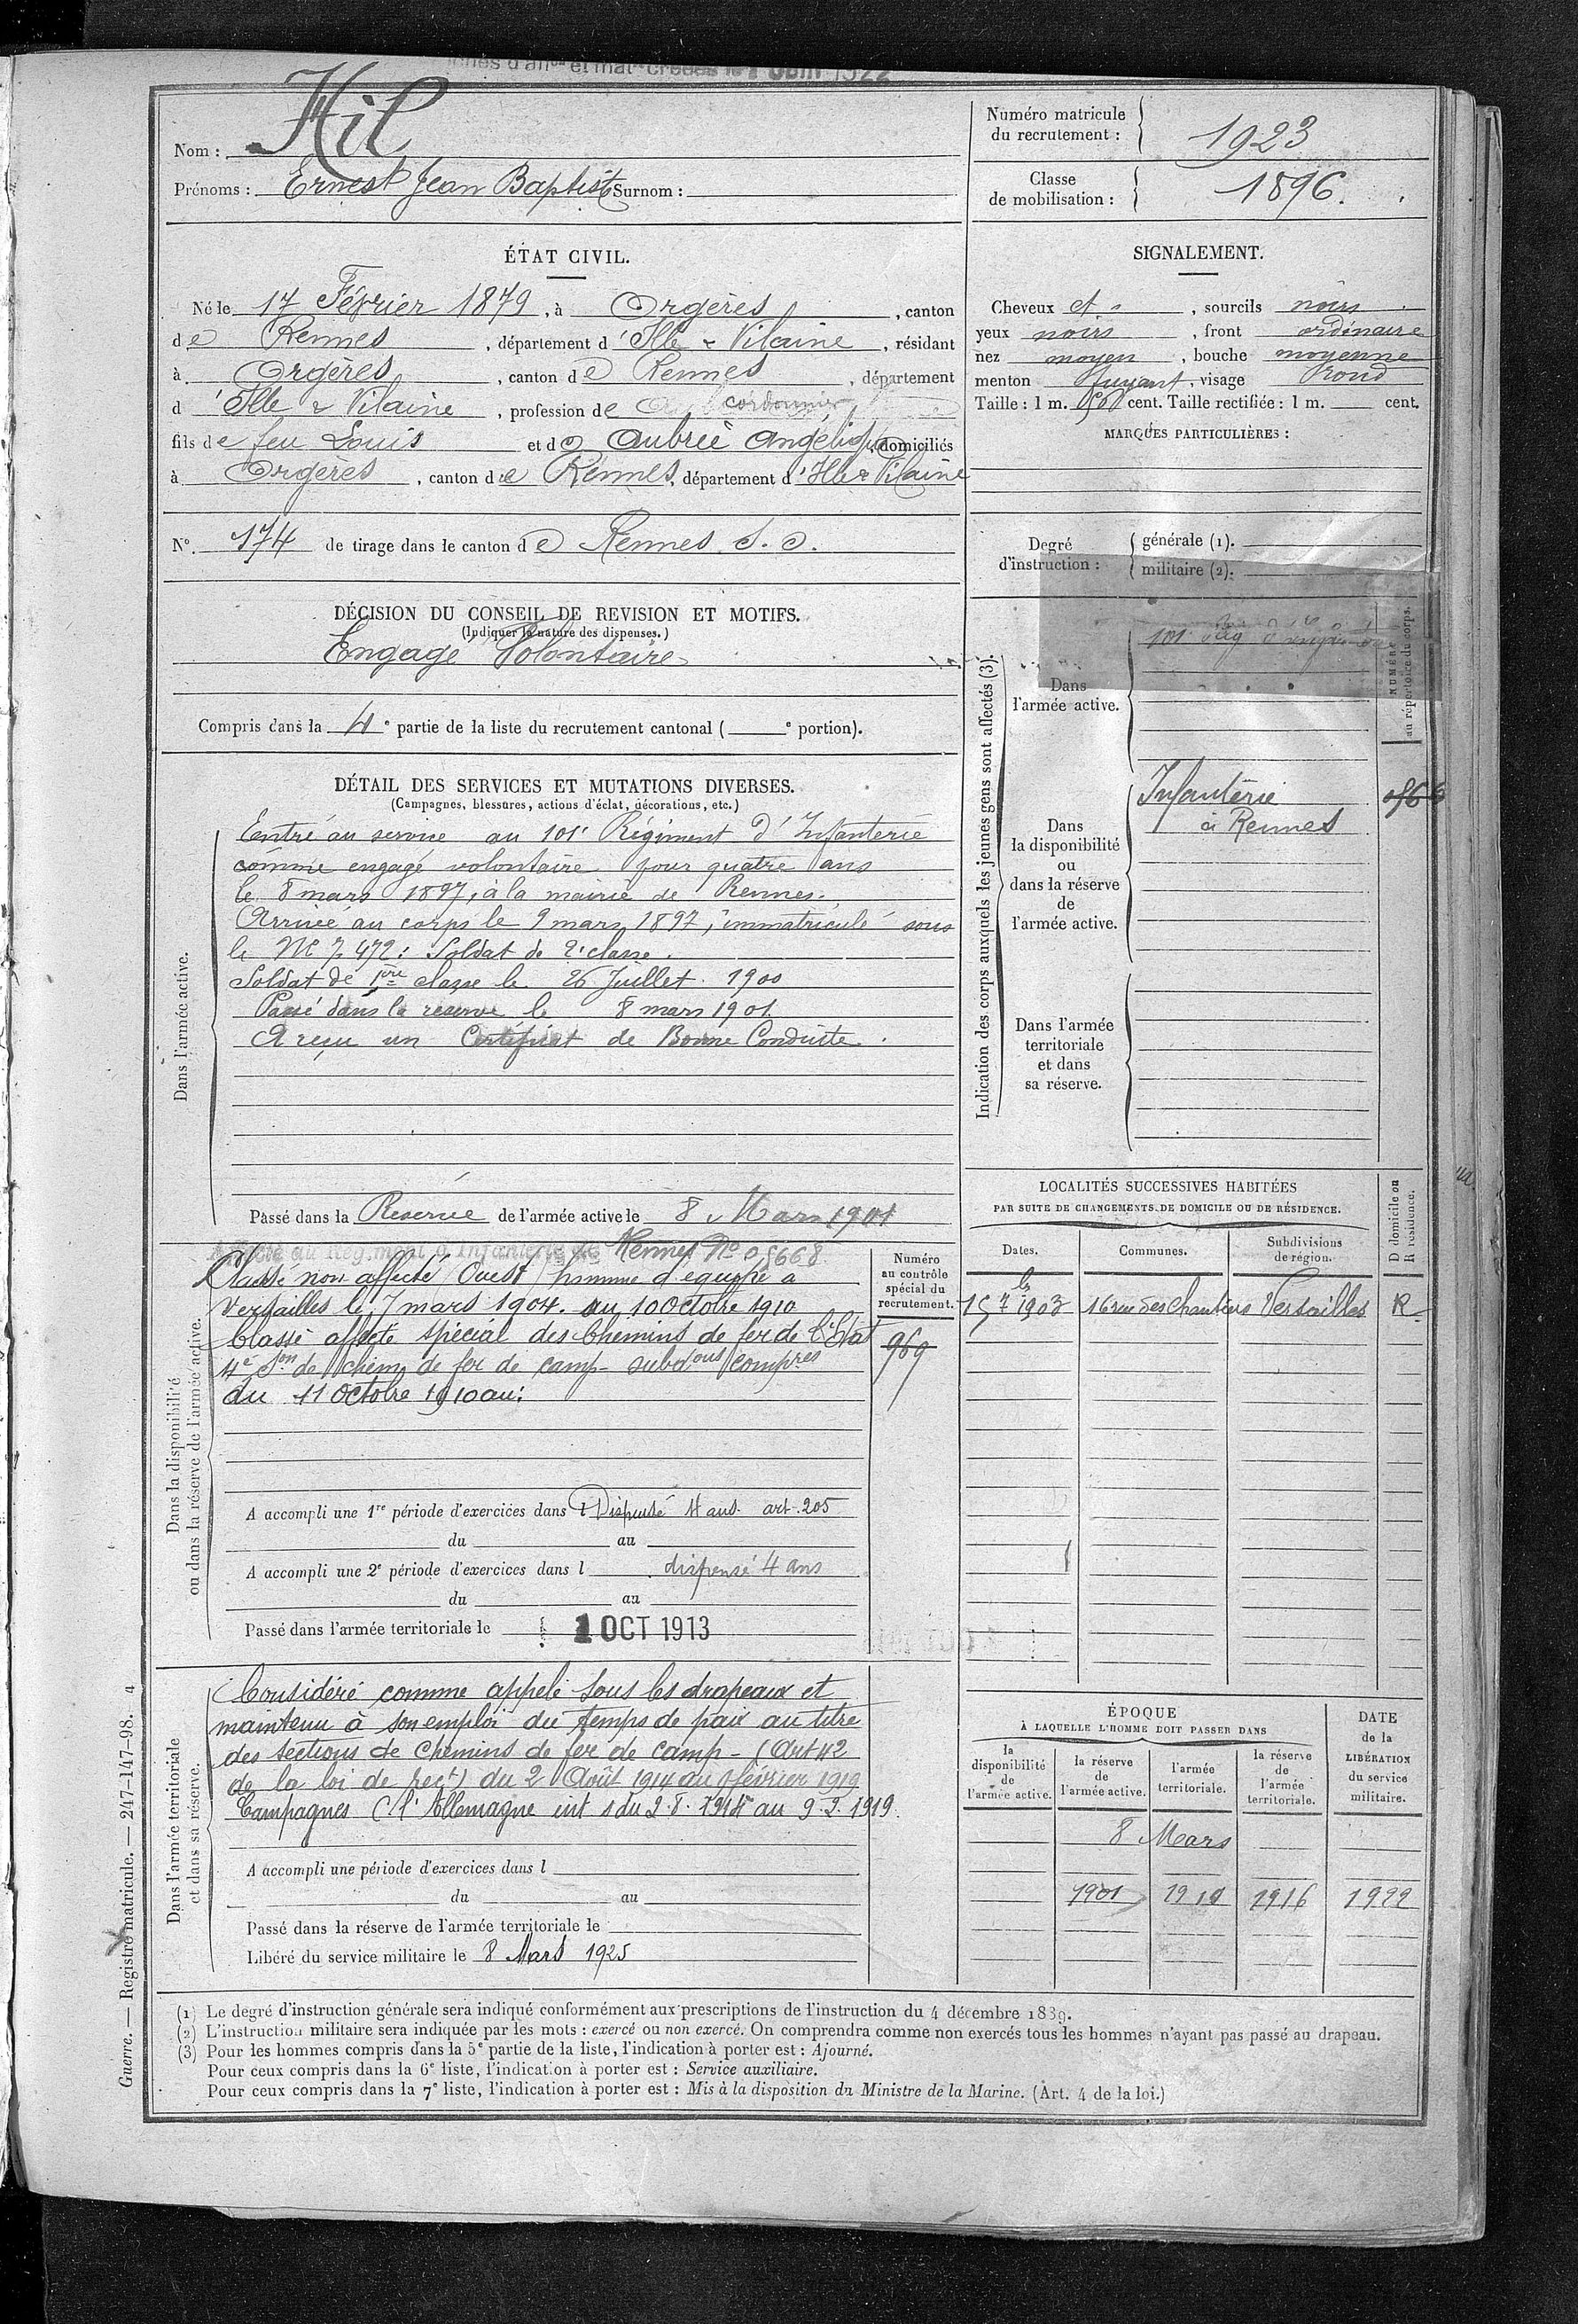 Nom : Hil
Prénoms : Ernest Jean Baptiste Surnom :
Numéro matricule du recrutement : 1923
Classe de mobilisation : 1896.
ÉTAT CIVIL.
Né le 17 Février 1879, à Orgères, canton
de Rennes, département d'Ille & Vilaine, résidant
à Orgères, canton de Rennes, département
d'Ille & Vilaine, profession de cordonnier
fils de feu Louis et de Aubrée Angélique, domiciliés
à Orgères, canton de Rennes, département d'Ille & Vilaine
N° 174 de tirage dans le canton de Rennes S. O.
DÉCISION DU CONSEIL DE REVISION ET MOTIFS.
(Indiquer la nature des dispenses.)
Engagé Volontaire
Compris dans la 4e partie de la liste du recrutement cantonal ( e portion).
DÉTAIL DES SERVICES ET MUTATIONS DIVERSES.
(Campagnes, blessures, actions d'éclat, décorations, etc.)
Dans l'armée active.
Entré au service au 101e Régiment d'Infanterie
comme engagé volontaire pour quatre ans
le 8 mars 1897, à la mairie de Rennes.
Arrivé au corps le 9 mars 1897, immatriculé sous
le N° 7472 : Soldat de 2e classe.
Soldat de 1ère classe le 26 Juillet 1900
Passé dans la réserve le 8 mars 1901.
A reçu un Certificat de Bonne Conduite.
Passé dans la Réserve de l'armée active le 8 Mars 1901
Dans la disponibilité
ou dans la réserve de l'armée active.
Affecté au Régiment d'Infanterie de Rennes N° 05668
Classé non affecté Ouest homme d'équipe à
Versailles le 7 mars 1904. au 10 Octobre 1910
Classé affecté spécial des Chemins de fer de l'Etat
4e Son de chem de fer de camp- subdons compres
du 11 Octobre 1910 au:
Numéro au contrôle spécial du recrutement.
969
A accompli une 1re période d'exercices dans l Dispensé 4 ans art. 205
du au
A accompli une 2e période d'exercices dans l dispensé 4 ans
du au
Passé dans l'armée territoriale le 1 OCT 1913
Dans l'armée territoriale
et dans sa réserve.
Considéré comme appelé sous les drapeaux et
maintenu à son emploi du temps de paix au titre
des sections de chemins de fer de camp- (Art 42
de la loi de rect) du 2 Août 1914 au 9 février 1919
Campagnes C. l'Allemagne int du 2.8.1914 au 9.2.1919.
A accompli une période d'exercices dans l
du au
Passé dans la réserve de l'armée territoriale le
Libéré du service militaire le 8 Mars 1925
SIGNALEMENT.
Cheveux , sourcils noirs
yeux noirs, front ordinaire
nez moyen, bouche moyenne
menton fuyant, visage rond
Taille : 1 m. cent. Taille rectifiée : 1 m. cent.
MARQUES PARTICULIÈRES :
Degré d'instruction : générale (1).
militaire (2):
Indication des corps auxquels les jeunes gens sont affectés (3).
NUMÉRO au répertoire du corps.
Dans l'armée active.
101
Dans la disponibilité ou dans la réserve de l'armée active.
Infanterie
à Rennes
Dans l'armée territoriale et dans sa réserve.
LOCALITÉS SUCCESSIVES HABITÉES
PAR SUITE DE CHANGEMENTS DE DOMICILE OU DE RÉSIDENCE.
Dates. Communes. Subdivisions de région. D domicile ou R résidence.
15 7bre 1903 16 rue des Chantiers Versailles R
ÉPOQUE
À LAQUELLE L'HOMME DOIT PASSER DANS
la disponibilité de l'armée active. la réserve de l'armée active. l'armée territoriale. la réserve de l'armée territoriale. DATE de la LIBÉRATION du service militaire.
8 Mars
1901 1910 1916 1922
(1) Le degré d'instruction générale sera indiqué conformément aux prescriptions de l'instruction du 4 décembre 1889.
(2) L'instruction militaire sera indiquée par les mots : exercé ou non exercé. On comprendra comme non exercés tous les hommes n'ayant pas passé au drapeau.
(3) Pour les hommes compris dans la 5e partie de la liste, l'indication à porter est : Ajourné.
Pour ceux compris dans la 6e liste, l'indication à porter est : Service auxiliaire.
Pour ceux compris dans la 7e liste, l'indication à porter est : Mis à la disposition du Ministre de la Marine. (Art. 4 de la loi.)
Guerre. — Registre matricule. — 247-147-98. 4